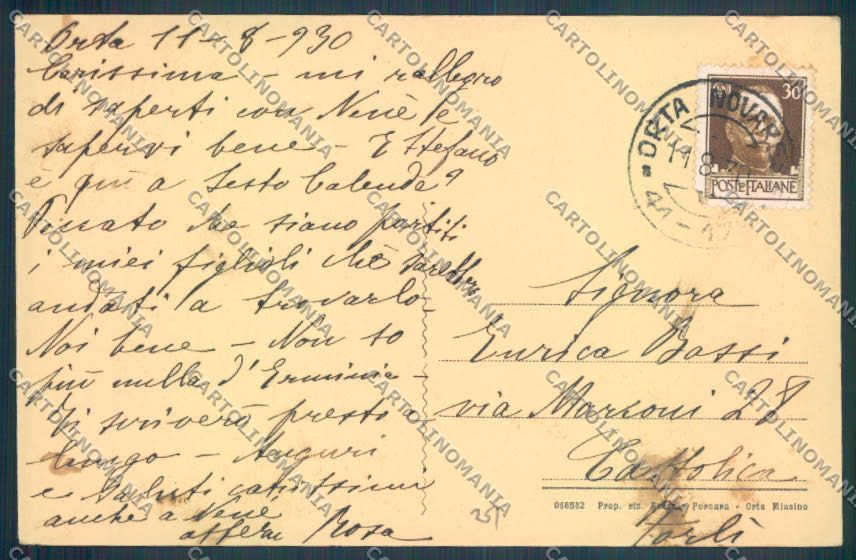 Orta 11-8-930
Carissima - mi rallegro
di saperti con Nenè e
sapervi bene - E Stefano
è più a Sesto Calende?
Peccato che siano partiti
i miei figlioli chè sarebbero
andati a trovarlo -
Noi bene - Non so
più nulla d'Erminia -
Ti scriverò presto a
lungo - Auguri
e saluti carissimi
anche a Nene
affem Rosa
30
POSTE ITALIANE
ORTA NOVARESE
11.8.30
Signora
Enrica Bassi
via Marconi 28
Cattolica
Forlì
068582 Prop. ris. Porcara - Orta Miasino
25
CARTOLINOMANIA